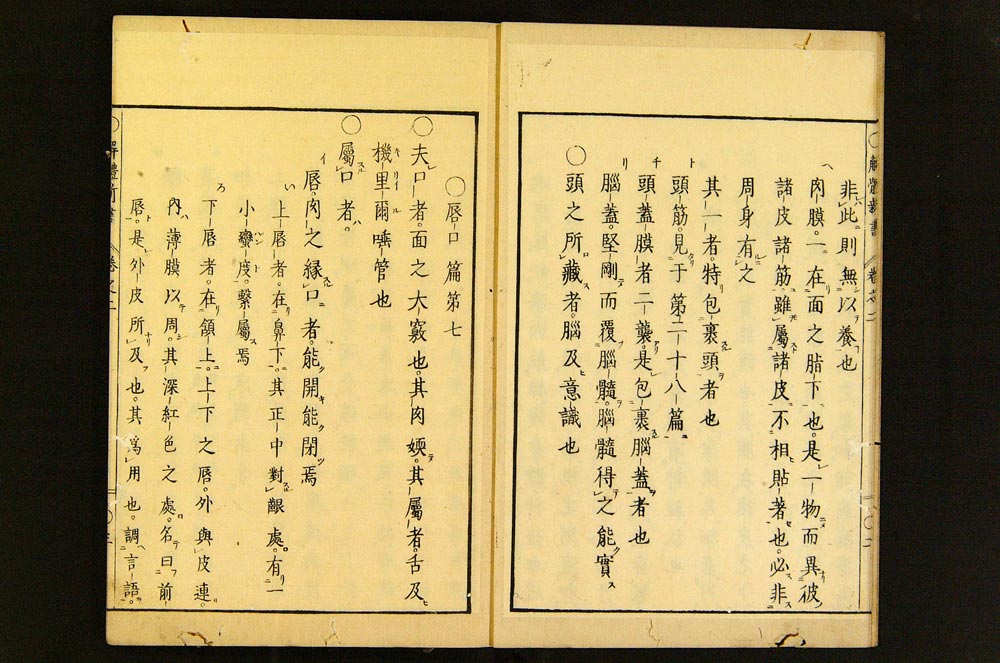 非此則無以養也
肉膜。一在面之脂下也。是一物而異彼
諸皮諸筋。雖屬諸皮。不相貼著也。必非
周身有之
其一者。特包裹頭者也
頭筋。見于第二十八篇
頭蓋膜者二襲。是包裹腦蓋者也
腦蓋。堅剛而覆腦髓。腦髓得之能實
〇頭之所藏者。腦及意識也
〇唇口篇第七
〇夫口者。面之大竅也。其肉㛂。其屬者。舌及
機里爾唾管也
〇屬口者。
唇。肉之緣口者。能開能閉焉
上唇者。在鼻下。其正中對齦處。有一
小蠻度。繫屬焉
下唇者。在頷上。上下之唇。外與皮連。
內薄膜以周。其深紅色之處。名曰前
唇。是外皮所及也。其爲用也。調言語。